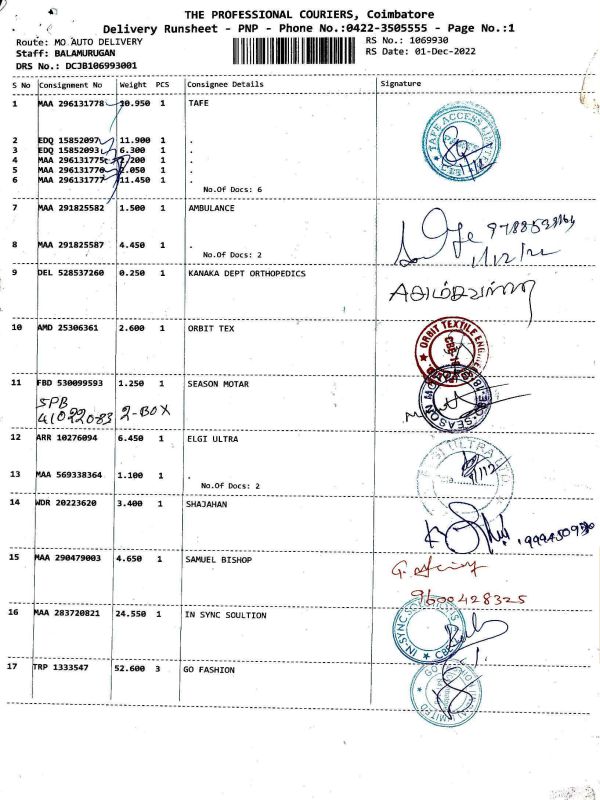 THE PROFESSIONAL COURIERS, Coimbatore
Delivery Runsheet - PNP - Phone No.:0422-3505555 - Page No.:1
Route: MO AUTO DELIVERY RS No.: 1069930
Staff: BALAMURUGAN RS Date: 01-Dec-2022
DRS No.: DCJB106993001
S No Consignment No Weight PCS Consignee Details Signature
1 MAA 296131778 10.950 1 TAFE
TAFE ACCESS LIMITED
2 EDQ 15852097 11.900 1 .
3 EDQ 15852093 6.300 1 .
4 MAA 296131775 .200 1 .
5 MAA 296131776 .050 1 .
6 MAA 296131777 11.450 1 .
No.Of Docs: 6
7 MAA 291825582 1.500 1 AMBULANCE
8 MAA 291825587 4.450 1 .
No.Of Docs: 2
1/12/22
9 DEL 528537260 0.250 1 KANAKA DEPT ORTHOPEDICS
10 AMD 25306361 2.600 1 ORBIT TEX
ORBIT TEXTILE ENG
11 FBD 530099593 1.250 1 SEASON MOTAR
SPB
41022083 2-BOX
SEASON MO
12 ARR 10276094 6.450 1 ELGI ULTRA
ELGI ULTRA LTD
13 MAA 569338364 1.100 1 .
No.Of Docs: 2
14 WDR 20223620 3.400 1 SHAJAHAN
15 MAA 290479003 4.650 1 SAMUEL BISHOP
9600428325
16 MAA 283720821 24.550 1 IN SYNC SOULTION
IN-SYNC SOLUTIONS
CBE
17 TRP 1333547 52.600 3 GO FASHION
GO
LIMITED